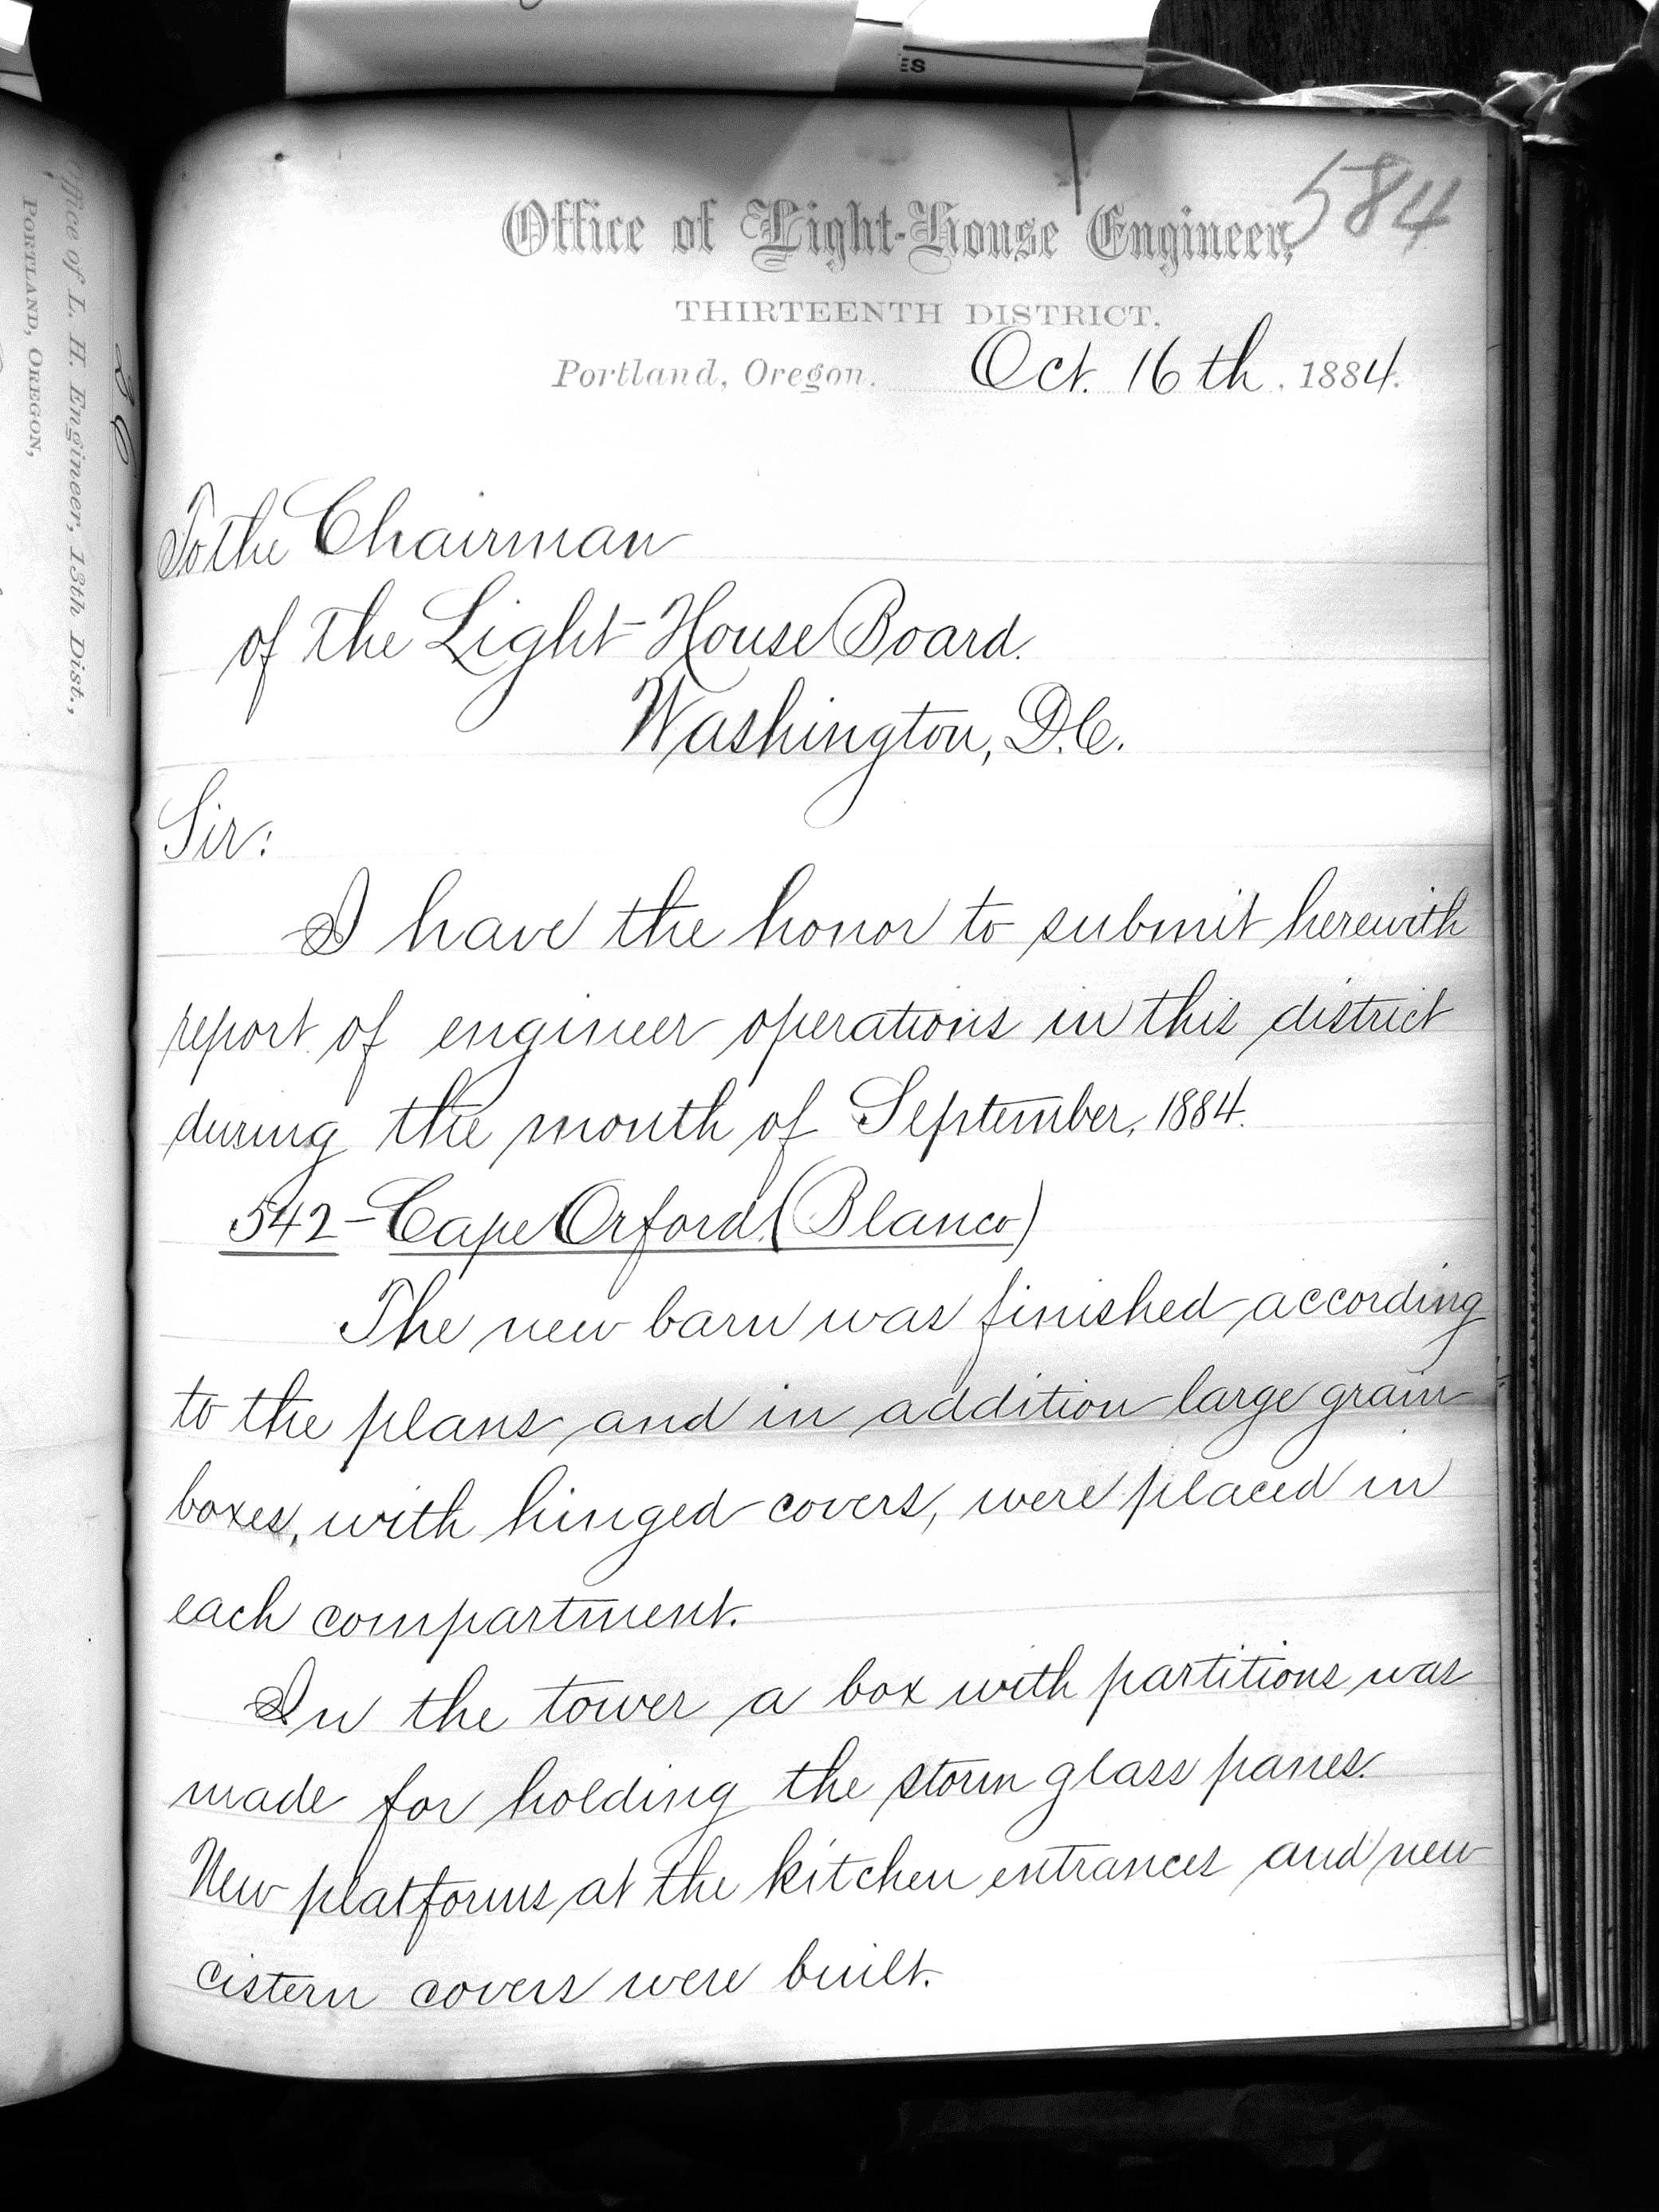 ES
584
Office of Light-House Engineer,
THIRTEENTH DISTRICT,
Portland, Oregon. Oct. 16th, 1884.
To the Chairman
of the Light-House Board.
Washington, D.C.
Sir:
I have the honor to submit herewith
report of engineer operations in this district
during the month of September, 1884.
542 - Cape Orford. (Blanco)
The new barn was finished according
to the plans and in addition large grain
boxes, with hinged covers, were placed in
each compartment.
In the tower a box with partitions was
made for holding the storm glass panes.
New platforms at the kitchen entrances and new
cistern covers were built.
Office of L. H. Engineer, 13th Dist.,
PORTLAND, OREGON,